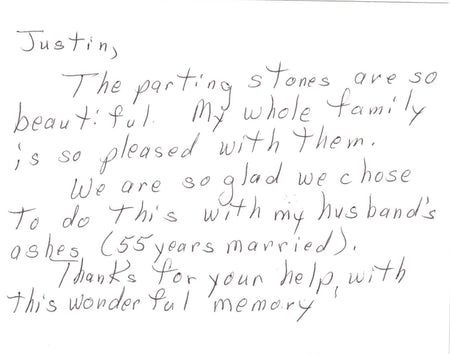 Justin,
The parting stones are so
beautiful. My whole family
is so pleased with them.
We are so glad we chose
to do this with my husband's
ashes (55 years married).
Thanks for your help, with
this wonderful memory